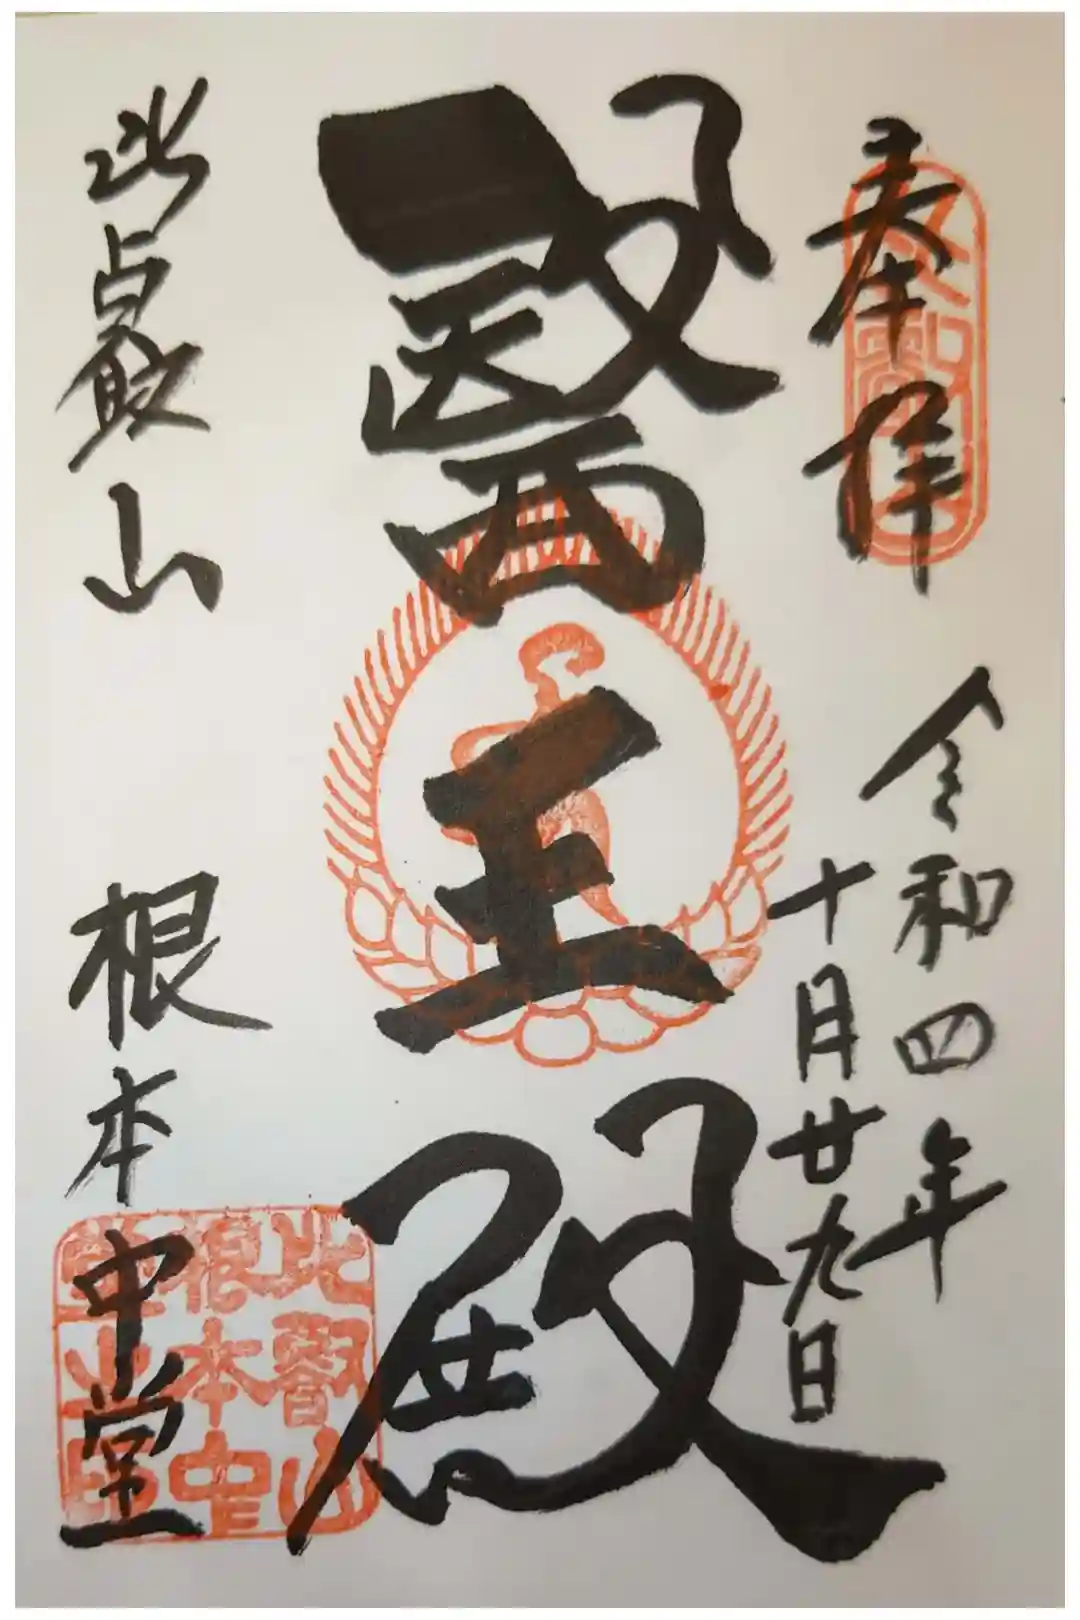 奉拝
令和四年
十月廿九日
醫王殿
比叡山 根本中堂
比叡山
根本中
堂之印